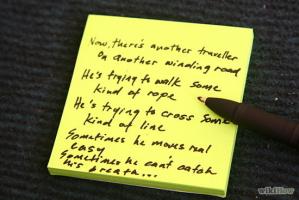 Now, there's another traveller
On another winding road
He's trying to walk some
kind of rope
He's trying to cross some
kind of line
Sometimes he moves real
easy
Sometimes he can't catch
his breath...
wikiHow